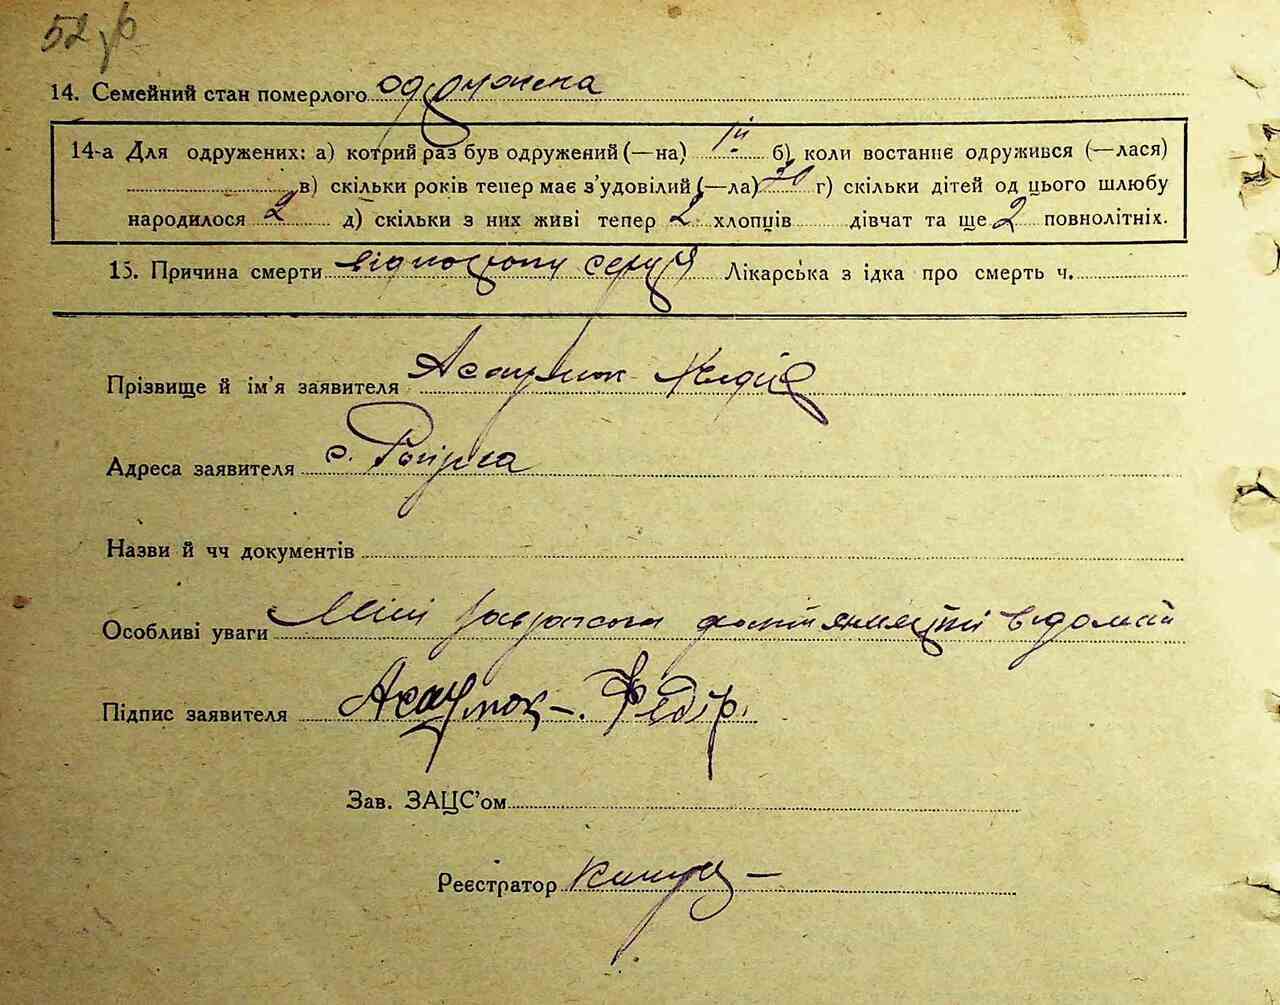 52
14. Семейний стан померлого одружена
14-а Для одружених: а) котрий раз був одружений (—на) 1й б) коли востаннє одружився (—лася)
в) скільки років тепер має з’удовілий (—ла) г) скільки дітей од цього шлюбу
народилося 2 д) скільки з них живі тепер 2 хлопців дівчат та ще 2 повнолітніх.
15. Причина смерти серця Лікарська з ідка про смерть ч.
Прізвище й ім’я заявителя
Адреса заявителя с.
Назви й чч документів
Особливі уваги Мені
Підпис заявителя Федір.
Зав. ЗАЦС’ом
Реєстратор